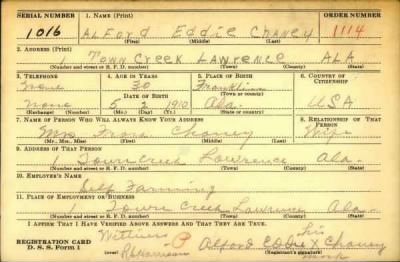 SERIAL NUMBER 1. NAME (Print) ORDER NUMBER
1016 ALFord Eddie Chaney 1114
(First) (Middle) (Last)
2. ADDRESS (Print)
1 Town Creek Lawrence ALA
(Number and street or R. F. D. number) (Town) (County) (State)
3. TELEPHONE 4. AGE IN YEARS 5. PLACE OF BIRTH 6. COUNTRY OF CITIZENSHIP
None 30 Franklin
DATE OF BIRTH (Town or county)
None 5 2 1910 Ala. USA
(Exchange) (Number) (Mo.) (Day) (Yr.) (State or country)
7. NAME OF PERSON WHO WILL ALWAYS KNOW YOUR ADDRESS 8. RELATIONSHIP OF THAT PERSON
Mrs Chaney Wife
(Mr., Mrs., Miss) (First) (Middle) (Last)
9. ADDRESS OF THAT PERSON
1 Town Creek Lawrence Ala.
(Number and street or R. F. D. number) (Town) (County) (State)
10. EMPLOYER'S NAME
Self Farming
11. PLACE OF EMPLOYMENT OR BUSINESS
1 Town Creek Lawrence Ala.
(Number and street or R. F. D. number) (Town) (County) (State)
I AFFIRM THAT I HAVE VERIFIED ABOVE ANSWERS AND THAT THEY ARE TRUE.
REGISTRATION CARD Witness Alford Eddie his X mark Chaney
D. S. S. Form 1